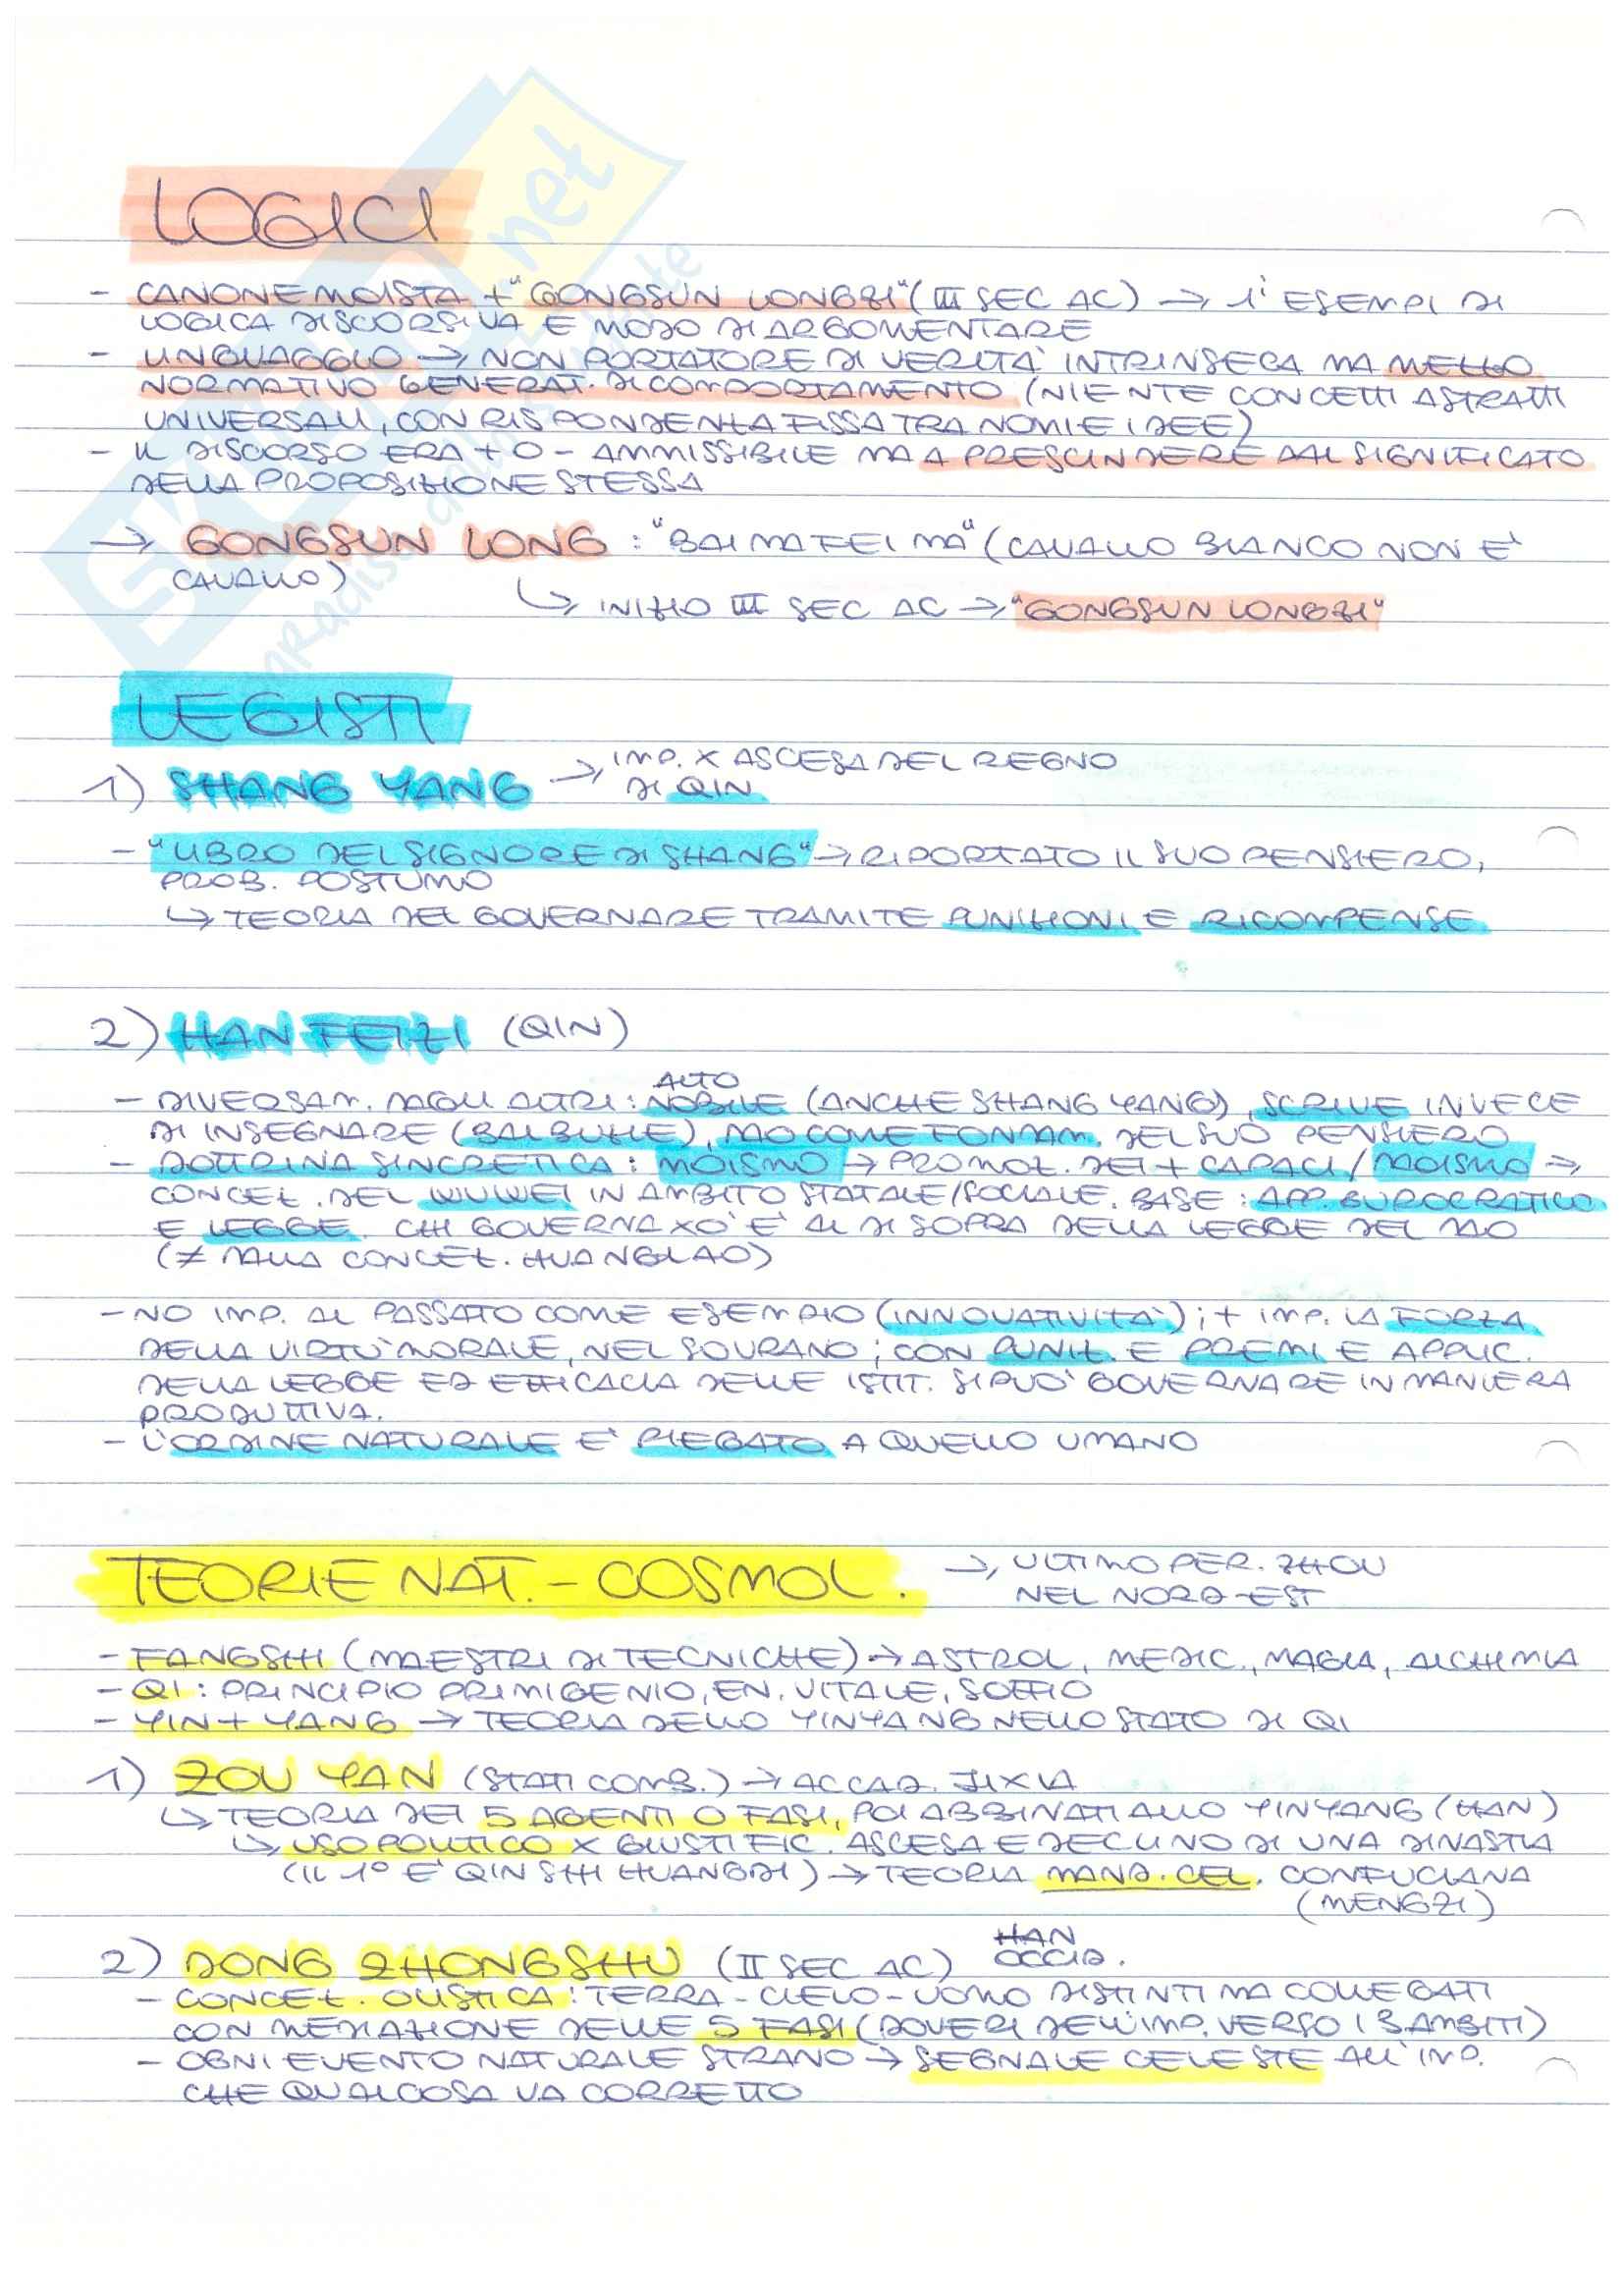 LOGICI
- CANONE MOISTA + "GONGSUN LONGZI" (III SEC AC) → 1i ESEMPI DI
LOGICA DISCORSIVA E MODO DI ARGOMENTARE
- LINGUAGGIO → NON PORTATORE DI VERITÀ INTRINSECA MA MEZZO
NORMATIVO GENERAT. DI COMPORTAMENTO (NIENTE CONCETTI ASTRATTI
UNIVERSALI, CORRISPONDENZA FISSA TRA NOMI E IDEE)
- IL DISCORSO ERA + O - AMMISSIBILE MA A PRESCINDERE DAL SIGNIFICATO
DELLA PROPOSIZIONE STESSA
→ GONGSUN LONG : "BAI MA FEI MA" (CAVALLO BIANCO NON È
CAVALLO)
↳ INIZIO III SEC AC → "GONGSUN LONGZI"
LEGISTI
1) SHANG YANG → IMP. X ASCESA DEL REGNO
DI QIN
- "LIBRO DEL SIGNORE DI SHANG" → RIPORTATO IL SUO PENSIERO,
PROB. POSTUMO
↳ TEORIA DEL GOVERNARE TRAMITE PUNIZIONI E RICOMPENSE
2) HAN FEIZI (QIN)
ALTO
- DIVERSAM. DAGLI ALTRI : NOBILE (ANCHE SHANG YANG), SCRIVE INVECE
DI INSEGNARE (BALBUZIE), DAO COME FONDAM. DEL SUO PENSIERO
- DOTTRINA SINCRETICA : MOISMO → PROMOZ. DEI + CAPACI / DAOISMO →
CONCEZ. DEL WUWEI IN AMBITO STATALE/SOCIALE. BASE : APP. BUROCRATICO
E LEGGE. CHI GOVERNA XÒ È AL DI SOPRA DELLA LEGGE DEL DAO
(≠ DALLA CONCEZ. HUANGLAO)
- NO IMP. AL PASSATO COME ESEMPIO (INNOVATIVITÀ) ; + IMP. LA FORZA
DELLA VIRTÙ MORALE, NEL SOVRANO ; CON PUNIZ. E PREMI E APPLIC.
DELLA LEGGE ED EFFICACIA DELLE ISTIT. SI PUÒ GOVERNARE IN MANIERA
PRODUTTIVA.
- L'ORDINE NATURALE È PIEGATO A QUELLO UMANO
TEORIE NAT. - COSMOL. → ULTIMO PER. ZHOU
NEL NORD-EST
- FANGSHI (MAESTRI DI TECNICHE) → ASTROL, MEDIC., MAGIA, ALCHIMIA
- QI : PRINCIPIO PRIMIGENIO, EN. VITALE, SOFFIO
- YIN + YANG → TEORIA DELLO YINYANG NELLO STATO DI QI
1) ZOU YAN (STATI COMB.) → ACCAD. JIXIA
↳ TEORIA DEI 5 AGENTI O FASI, POI ABBINATI ALLO YINYANG (HAN)
↳ USO POLITICO X GIUSTIFIC. ASCESA E DECLINO DI UNA DINASTIA
(IL 1° È QIN SHI HUANGDI) → TEORIA MAND. CEL. CONFUCIANA
(MENGZI)
2) DONG ZHONGSHU (II SEC AC) HAN
OCCID.
- CONCEZ. OLISTICA : TERRA - CIELO - UOMO DISTINTI MA COLLEGATI
CON MEDIAZIONE DELLE 5 FASI (DOVERI DELL'IMP. VERSO I 3 AMBITI)
- OGNI EVENTO NATURALE STRANO → SEGNALE CELESTE ALL'IMP.
CHE QUALCOSA VA CORRETTO
SKUOLA.net